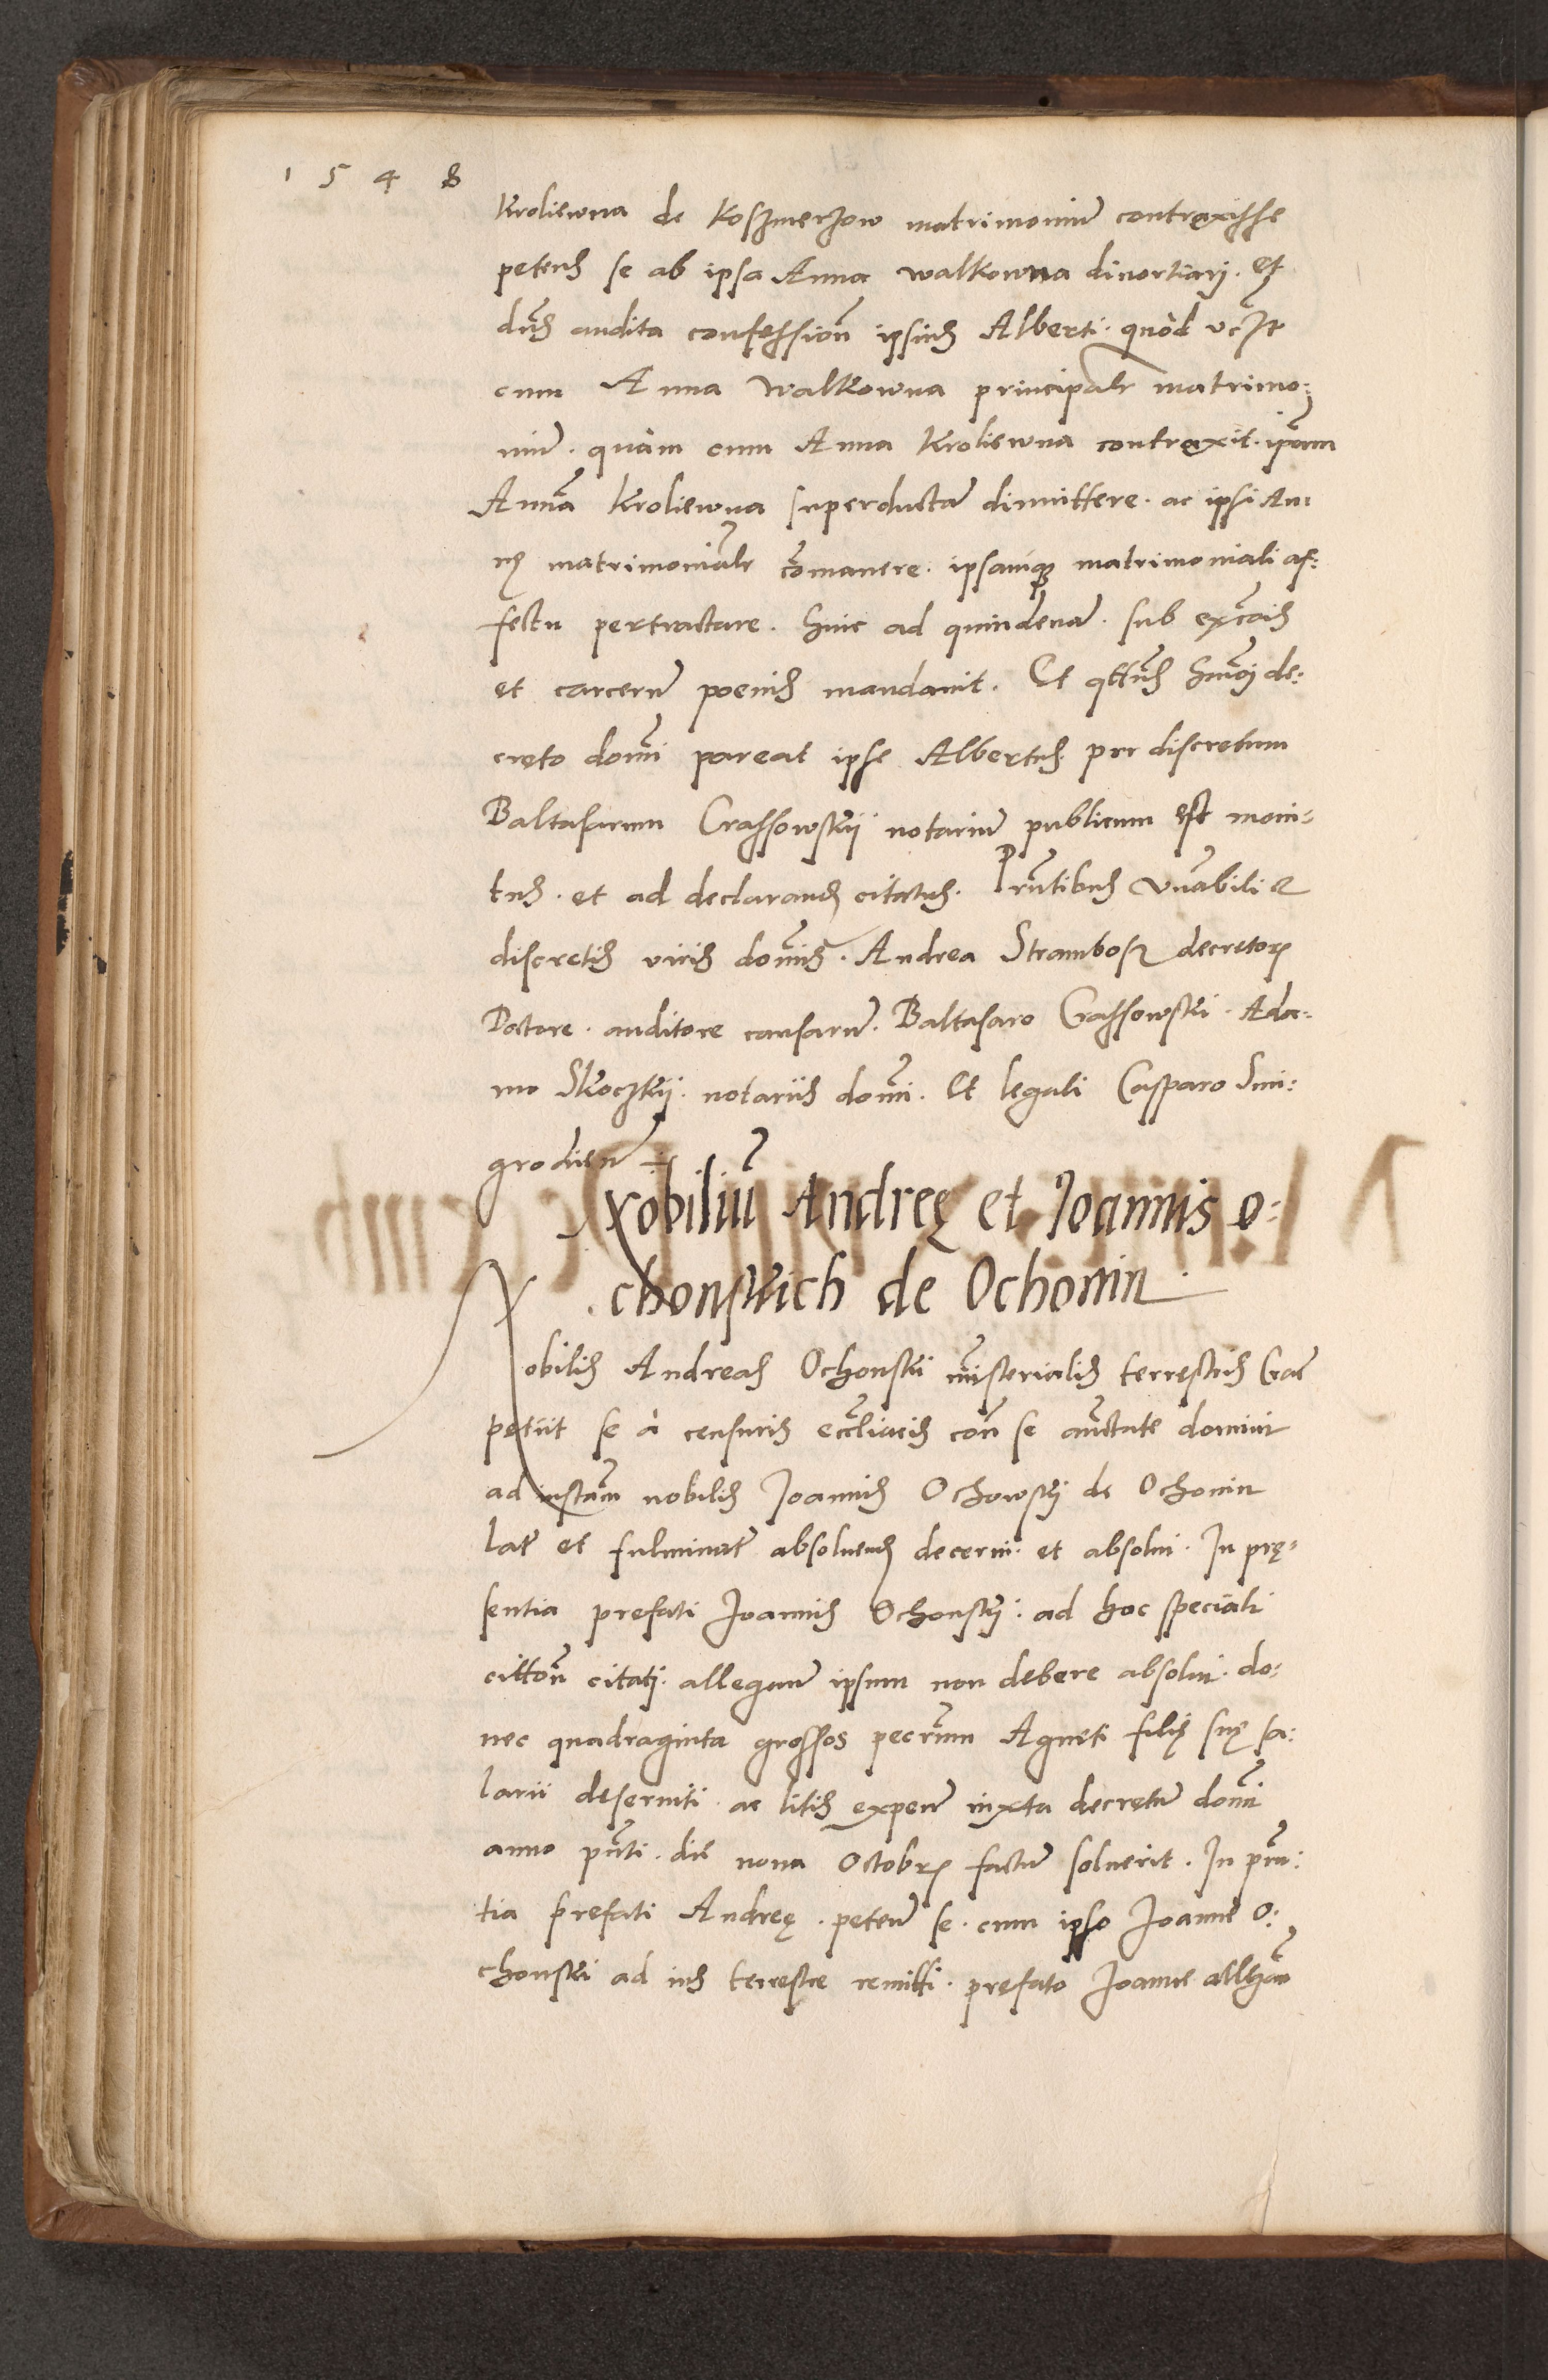 1 5 4 8
Kroliewna de Koszmerzow matrimoniũ contraxisse
petens se ab ipsa Anna walkowna divortiarj. Et
dñs audita confessioñ ipsius Alberti. quòd
cum Anna Walkowna principalr matrimo:
niũ. quàm cum Anna Kroliewna contraxit. ip̃am
Annã Kroliewna superductã dimittere. ac ipsi An:
nę matrimonialr cõmanere. ipsamq; matrimoniali af:
fectu pertractare. Hinc ad quindenã. sub exc̃ois
et carcerũ poenis mandavit. Et q̃tt̃us hm̃oj de:
creto domĩ pareat ipse Albertus. per discretum
Baltasarum Crassowskii notariũ publicum est moni:
tus. et ad declarandũ citatus. Prñtibus vñabili &
discretis viris domĩs. Andrea Strambosz decretorũ
Doctore. auditore causarũ. Baltasaro Crassowski. Ada:
mo Skoczkii. notariis domĩ. Et legali Casparo Smi:
grodieñ
Nobiliũ Andreę et Joannis O:
chonskich de Ochonin
Nobilis Andreas Ochonski mĩsterialis terrestris Crać
petiit se à censuris eccl̃iacis coñ se auc̃tate domini
ad instañ nobilis Joannis Ochowskj de Ochonin
lat̃ et fulminat̃ absolvend̃ decerni. et absolvi. In prę:
sentia prefati Joannis Ochonskj. ad hoc speciali
cittoñ citatj. allegan̄ ipsum non debere absolvi. do:
nec quadraginta grossos pec̃rum Agneti filię suę sa:
larii deserviti. ac litis expeñ iuxta decretũ domĩ
anno p̃nti. die nona Octobrs factũ solverit. In prñ:
tia prefati Andreę. peteñ se. cum ipso Joanne O:
chonski ad ius terrestre remitti. prefato Joanne